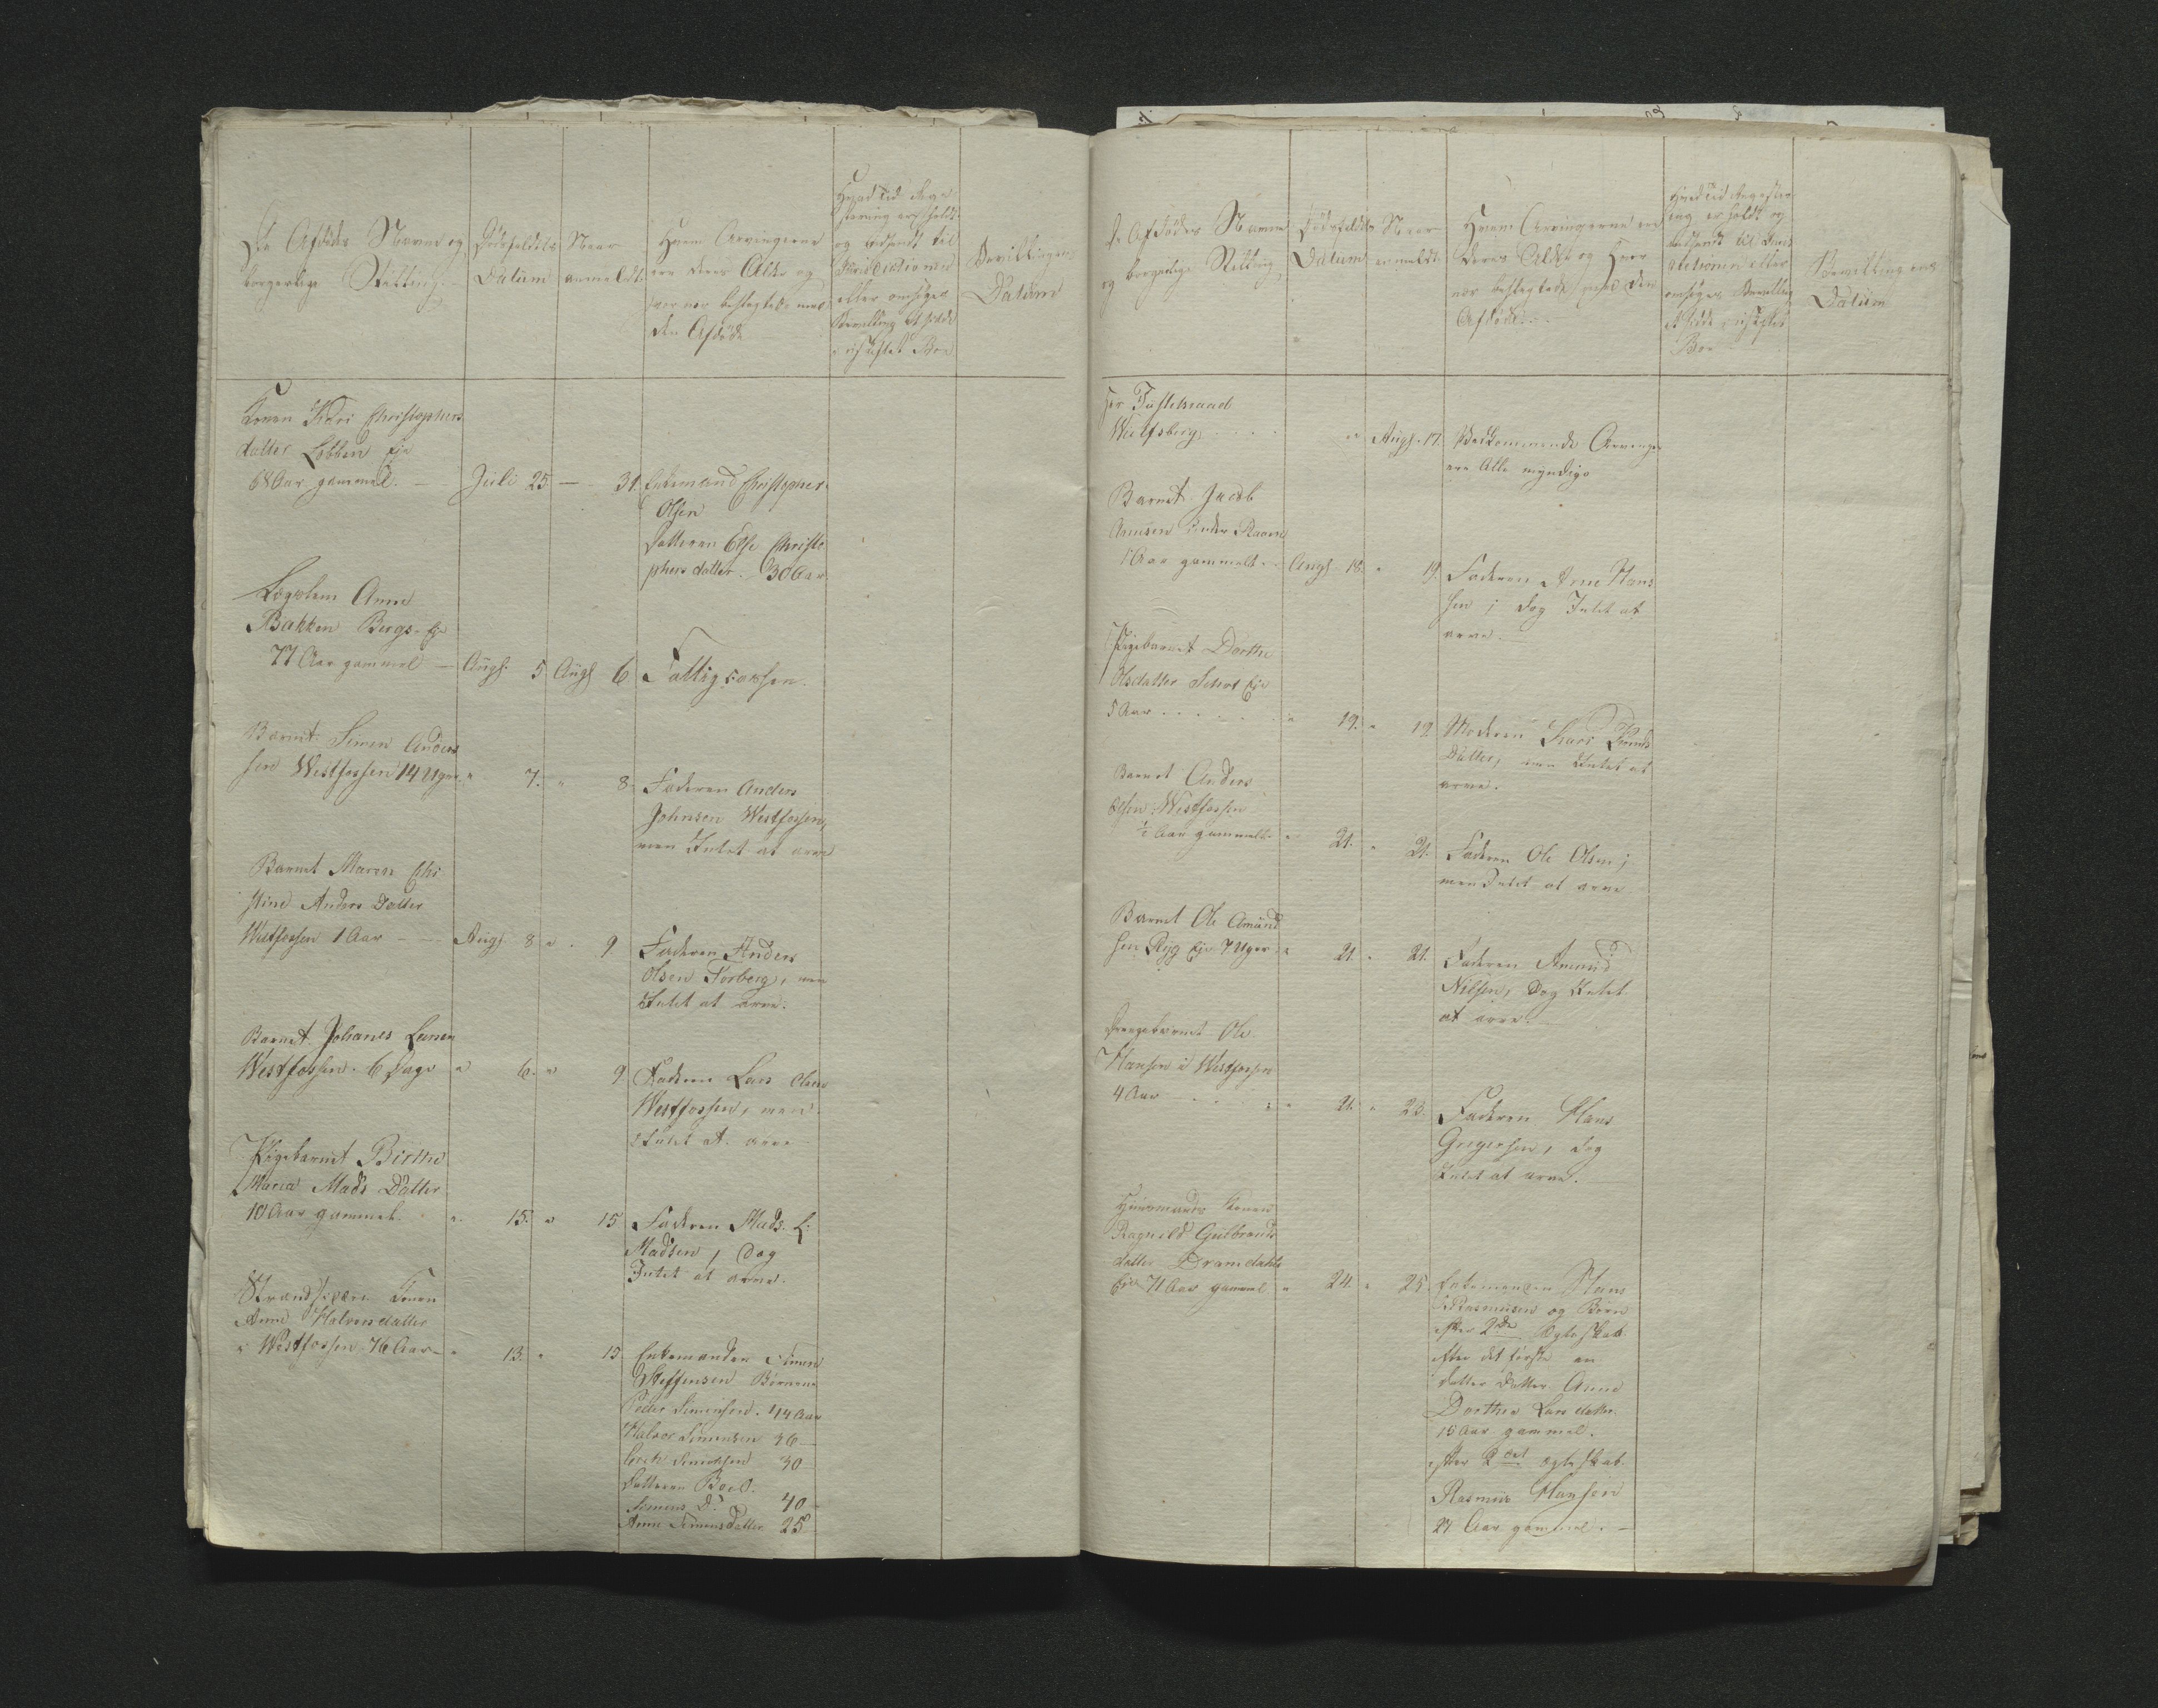 De Afdødes Navne og
borgerlige Stilling
Dødsfaldets
Datum
Naar
anmeldt
Hvem Arvingerne
ere deres Alder og
hvor nær beslægtede med
den Afdøde
Hvad Tid Regi
strering er holdt
og udsendt til
Jurisdictionen
eller ansøges
Bevilling at sidde
i uskiftet Boe
Bevillingens
Datum
Konen Kari Christophers
datter Lobben Eje
68 Aar gammel. —
Juli 25. — 31.
Enkemand Christopher
Olsen
Datteren Else Christo
phers datter. 30 Aar
Lægslem Anne
Bakken Bergs Eje
77 Aar gammel —
Augs. 5 Augs 6
Fattigkassen.
Barnet Simen Anders
sen Westfossen 14 Uger "
7. " 8.
Faderen Anders
Johnsen Westfossen,
men Intet at arve
Barnet Maren Chri
stine Anders Datter
Westfossen 1 Aar — —
Augs 8 " . 9
Faderen Anders
Olsen Torberg, men
Intet at arve.
Barnet Johanes Larsen
Westfossen. 6 Dage "
6. " 9
Faderen Lars Olsen
Westfossen, men
Intet at arve
Pigebarnet Birthe
Maria Mads Datter
10 Aar gammel. "
15. " 15
Faderen Mads L:
Madsen, dog
Intet at arve.
Strandsidder Konen
Anne Halvorsdatter
i Westfossen 76 Aar — "
13. " 15.
Enkemanden Simen
Steffensen Børnene
Peder Simensen. 44 Aar
Halvor Simensen 36 —
Erik Simensen 30 —
Datteren Boel
Simens D. 40 —
Anne Simensdatter 25 —
De Afdødes Navne
og borgerlige Stilling
Dødsfaldets
Datum
Naar
anmeldt
Hvem Arvingerne ere
deres Alder og hvor
nær beslægtede med den
Afdøde. —
Hvad Tid Registrer
ing er holdt og
udsendt til Juris
dictionen eller
ansøges Bevilling
at sidde i uskiftet
Boe
Bevillingens
Datum
Hr
Wulfsberg . . . .
" Augs. 17.
Vedkommende Arvinger
ere Alle myndige
Barnet Jacob
Arnesen
1 Aar gammelt.
Augs 18. " 19.
Faderen Arne Hans
sen; dog Intet at
arve. —
Pigebarnet Dorthe
Olsdatter Eje
5 Aar . . . . . . "
19. " 19
Moderen Kari
Datter, men Intet at
arve.
Barnet Anders
Olsen Westfossen
1/2 Aar gammelt. "
21. " 21.
Faderen Ole Olsen;
men Intet at arve
Barnet Ole Amund
sen Ryg Eje 7 Uger "
21. " 21.
Faderen Amund
Nilsen, dog Intet
at arve.
Drengebarnet Ole
Hansen i Westfossen
4 Aar — . . . "
21. " 23.
Faderen Hans
Gregersen, dog
Intet at arve.
Huusmands Konen
Ragnild Gulbrands
datter Dramdahls
Eje 71 Aar gammel "
24. " 25.
Enkemanden Hans
Rasmusen og Børn
efter 2de Egteskab
efter det første en
datter datter Anne
Dorthea Lars datter.
15 Aar gammel.
efter 2det Egteskab
Rasmus Hansen
27 Aar gammel. —